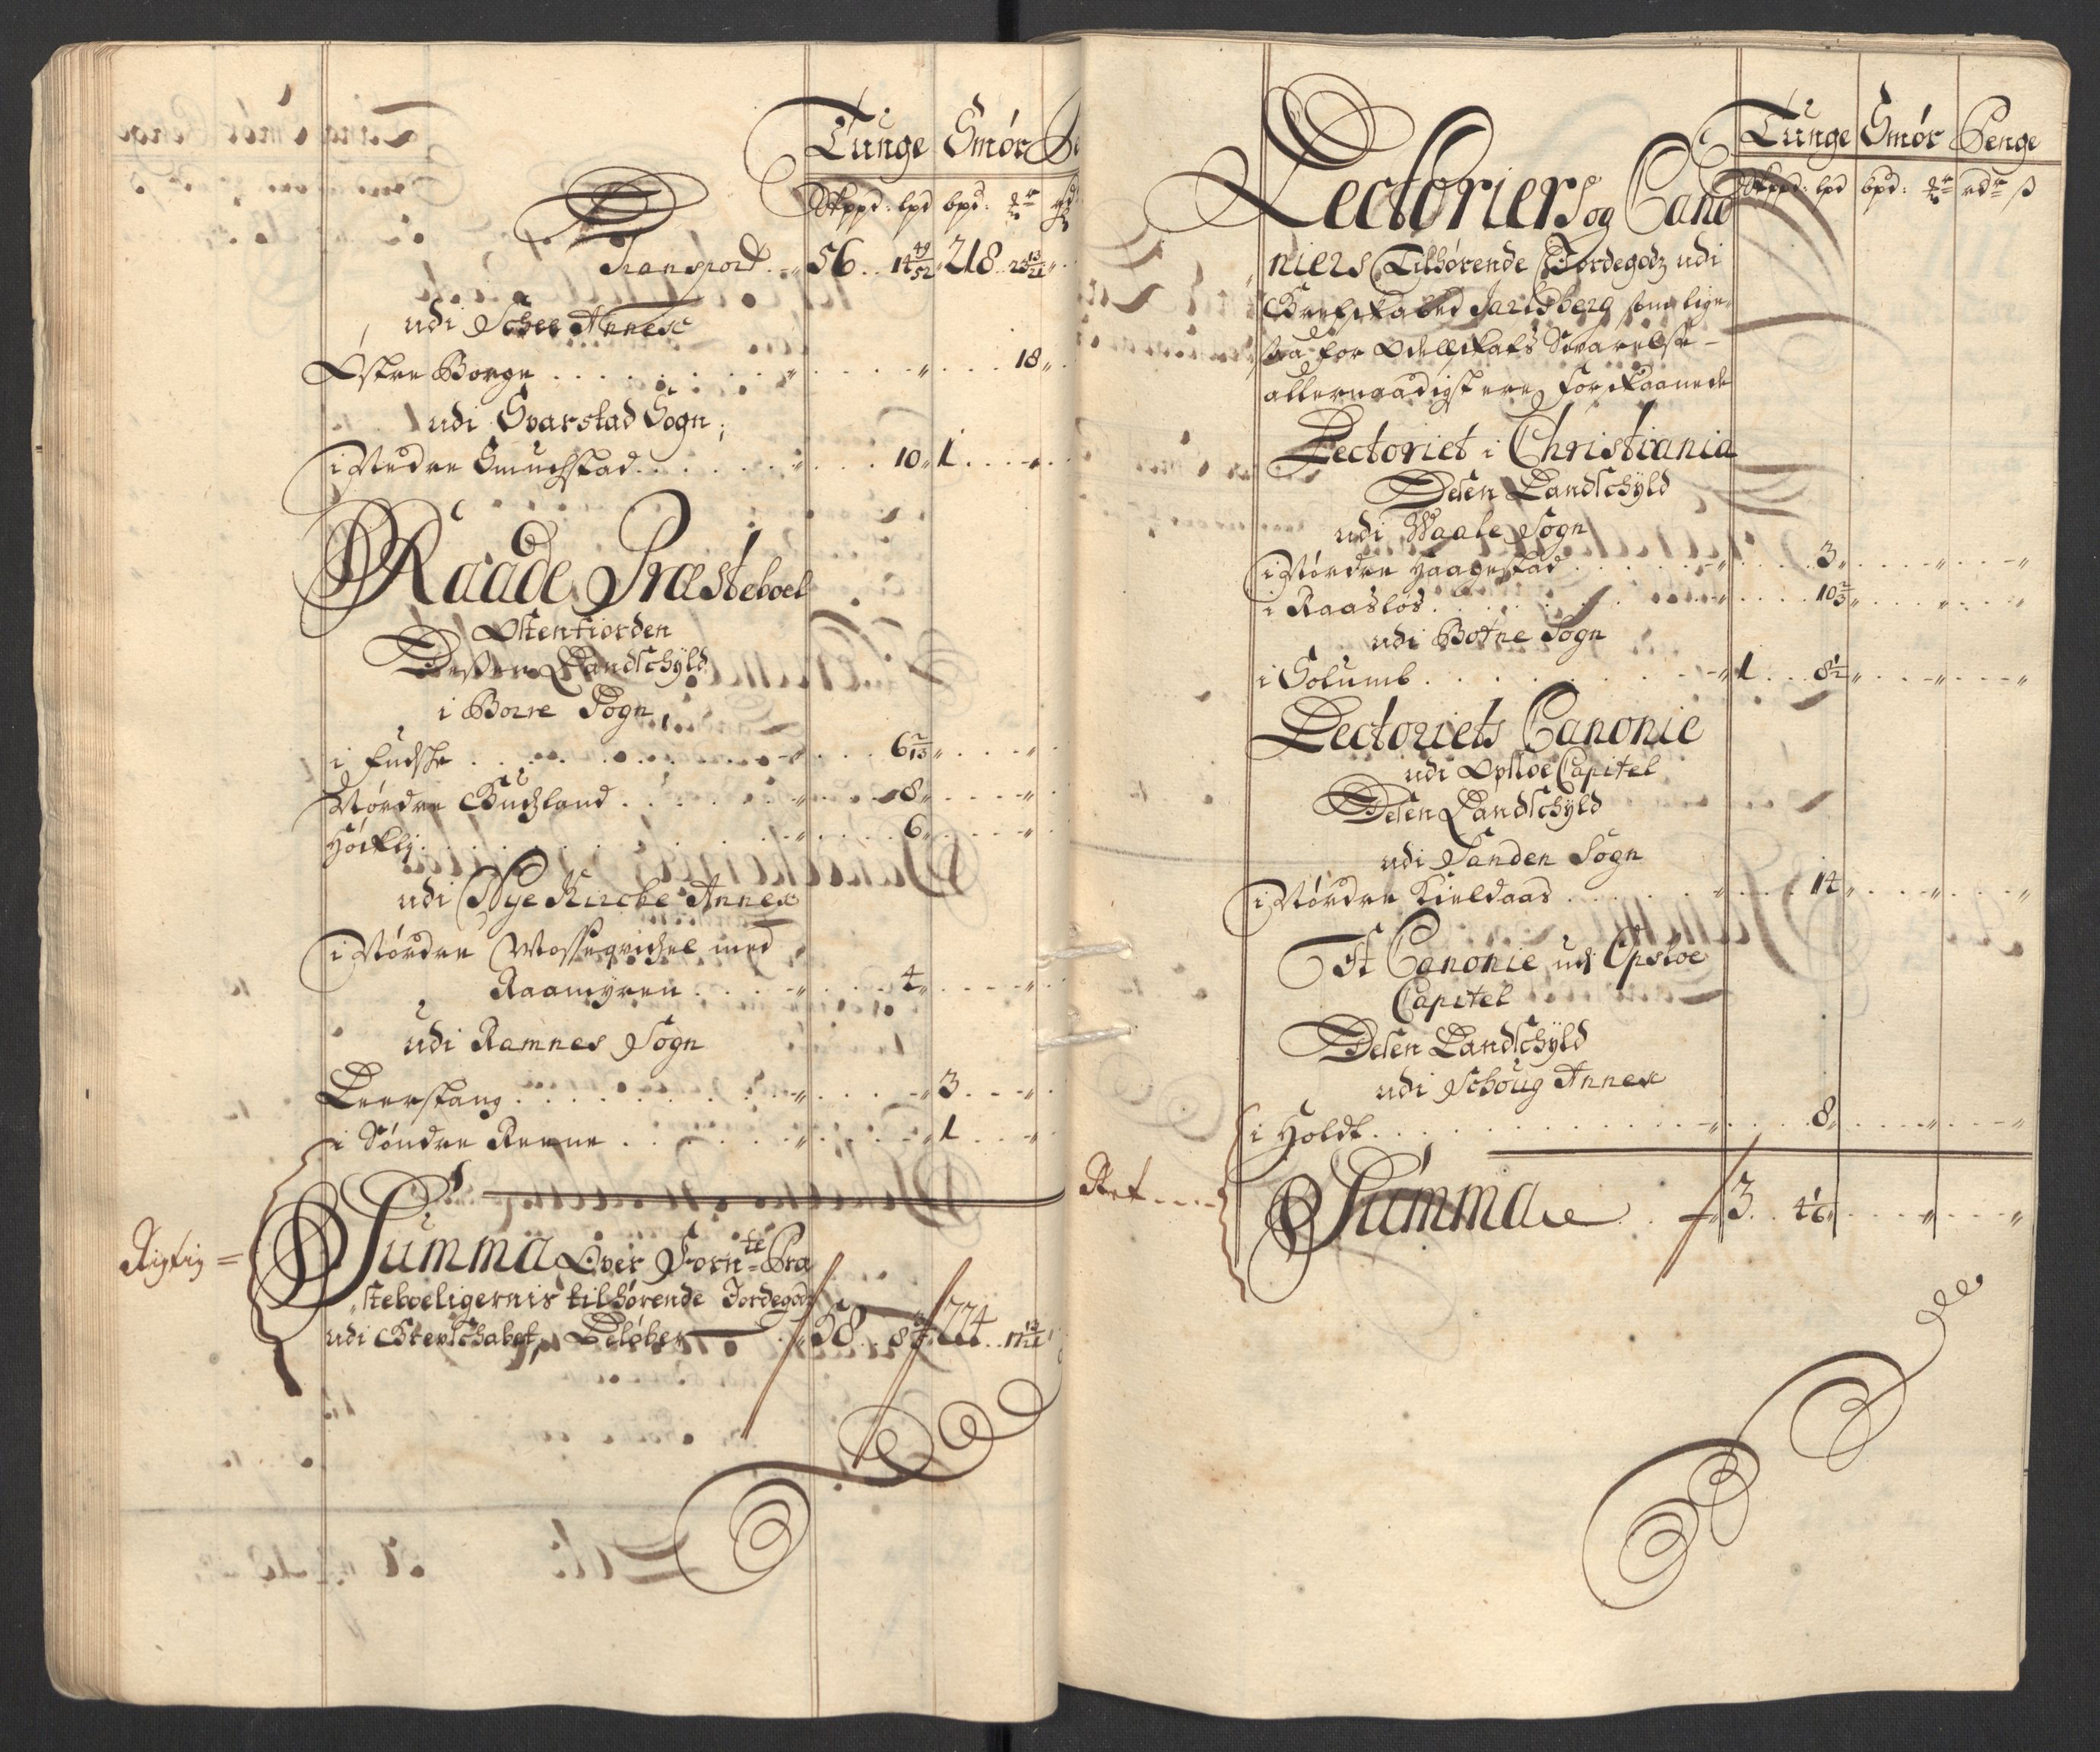 Tunge Smör Pe
Skppd: lpd bpd:
Transport. 56.. 14 49/52 218.. 23 13/21
udi Schee Annex
Østre Borge . . . . 18
udi Svarstad Sogn
i Nedre Smuchstad . . . . 10 1
Raade Præsteboel
Østenfiorden
Dessen Landschÿld
i Borre Sogn
i Fudshe . . . . 6 2/13
Nördre Gudsland . . . . 8
Höcklij . . . . 6
udi Nye Kirche Annex
i Nördre Mossequichel med
Raamÿren . . . . 4
udi Ramnes Sogn
Leerstang . . . . 3
i Söndre Reene . . . . 1
Rigtig =
Summa Over Forn:te Præ
steboeligernis tilhörende Jordegodz
udi Grevschabet, Belöber 58.. 8 224.. 17 13/21
Tunge Smör Penge
Skppd: lpd bpd: rdr ß
Lectoriers og Cano
niers Tilhörende Jordegodz udi
Grefskabed Jarlsberg som lige-
saa for Odellskats Svarelse
allernaadigst ere forskaanede
Lectoriet i Christiania
Desen Landschÿld
udi Waale Sogn
i Nördre Haagestad . . . . 3
i Raaslos . . . . 10 2/3
udi Botne Sogn
i Solumb . . . . 1 . . 8 1/2
Lectoriets Canonie
udi Opsloe Capitel
Desen Landschÿld
udi Sanden Sogn
i Nördre Kieldaas . . . . 14
Et Canonie udi Opsloe
Capitel
Desen Landschÿld
udi Schoug Annex
i Holdt . . . . 8
Ret ----
Summa . . 3. . 4 1/6